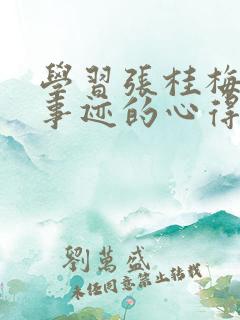 學習張桂梅
事迹的心得
劉萬盛
未經同意禁止轉載